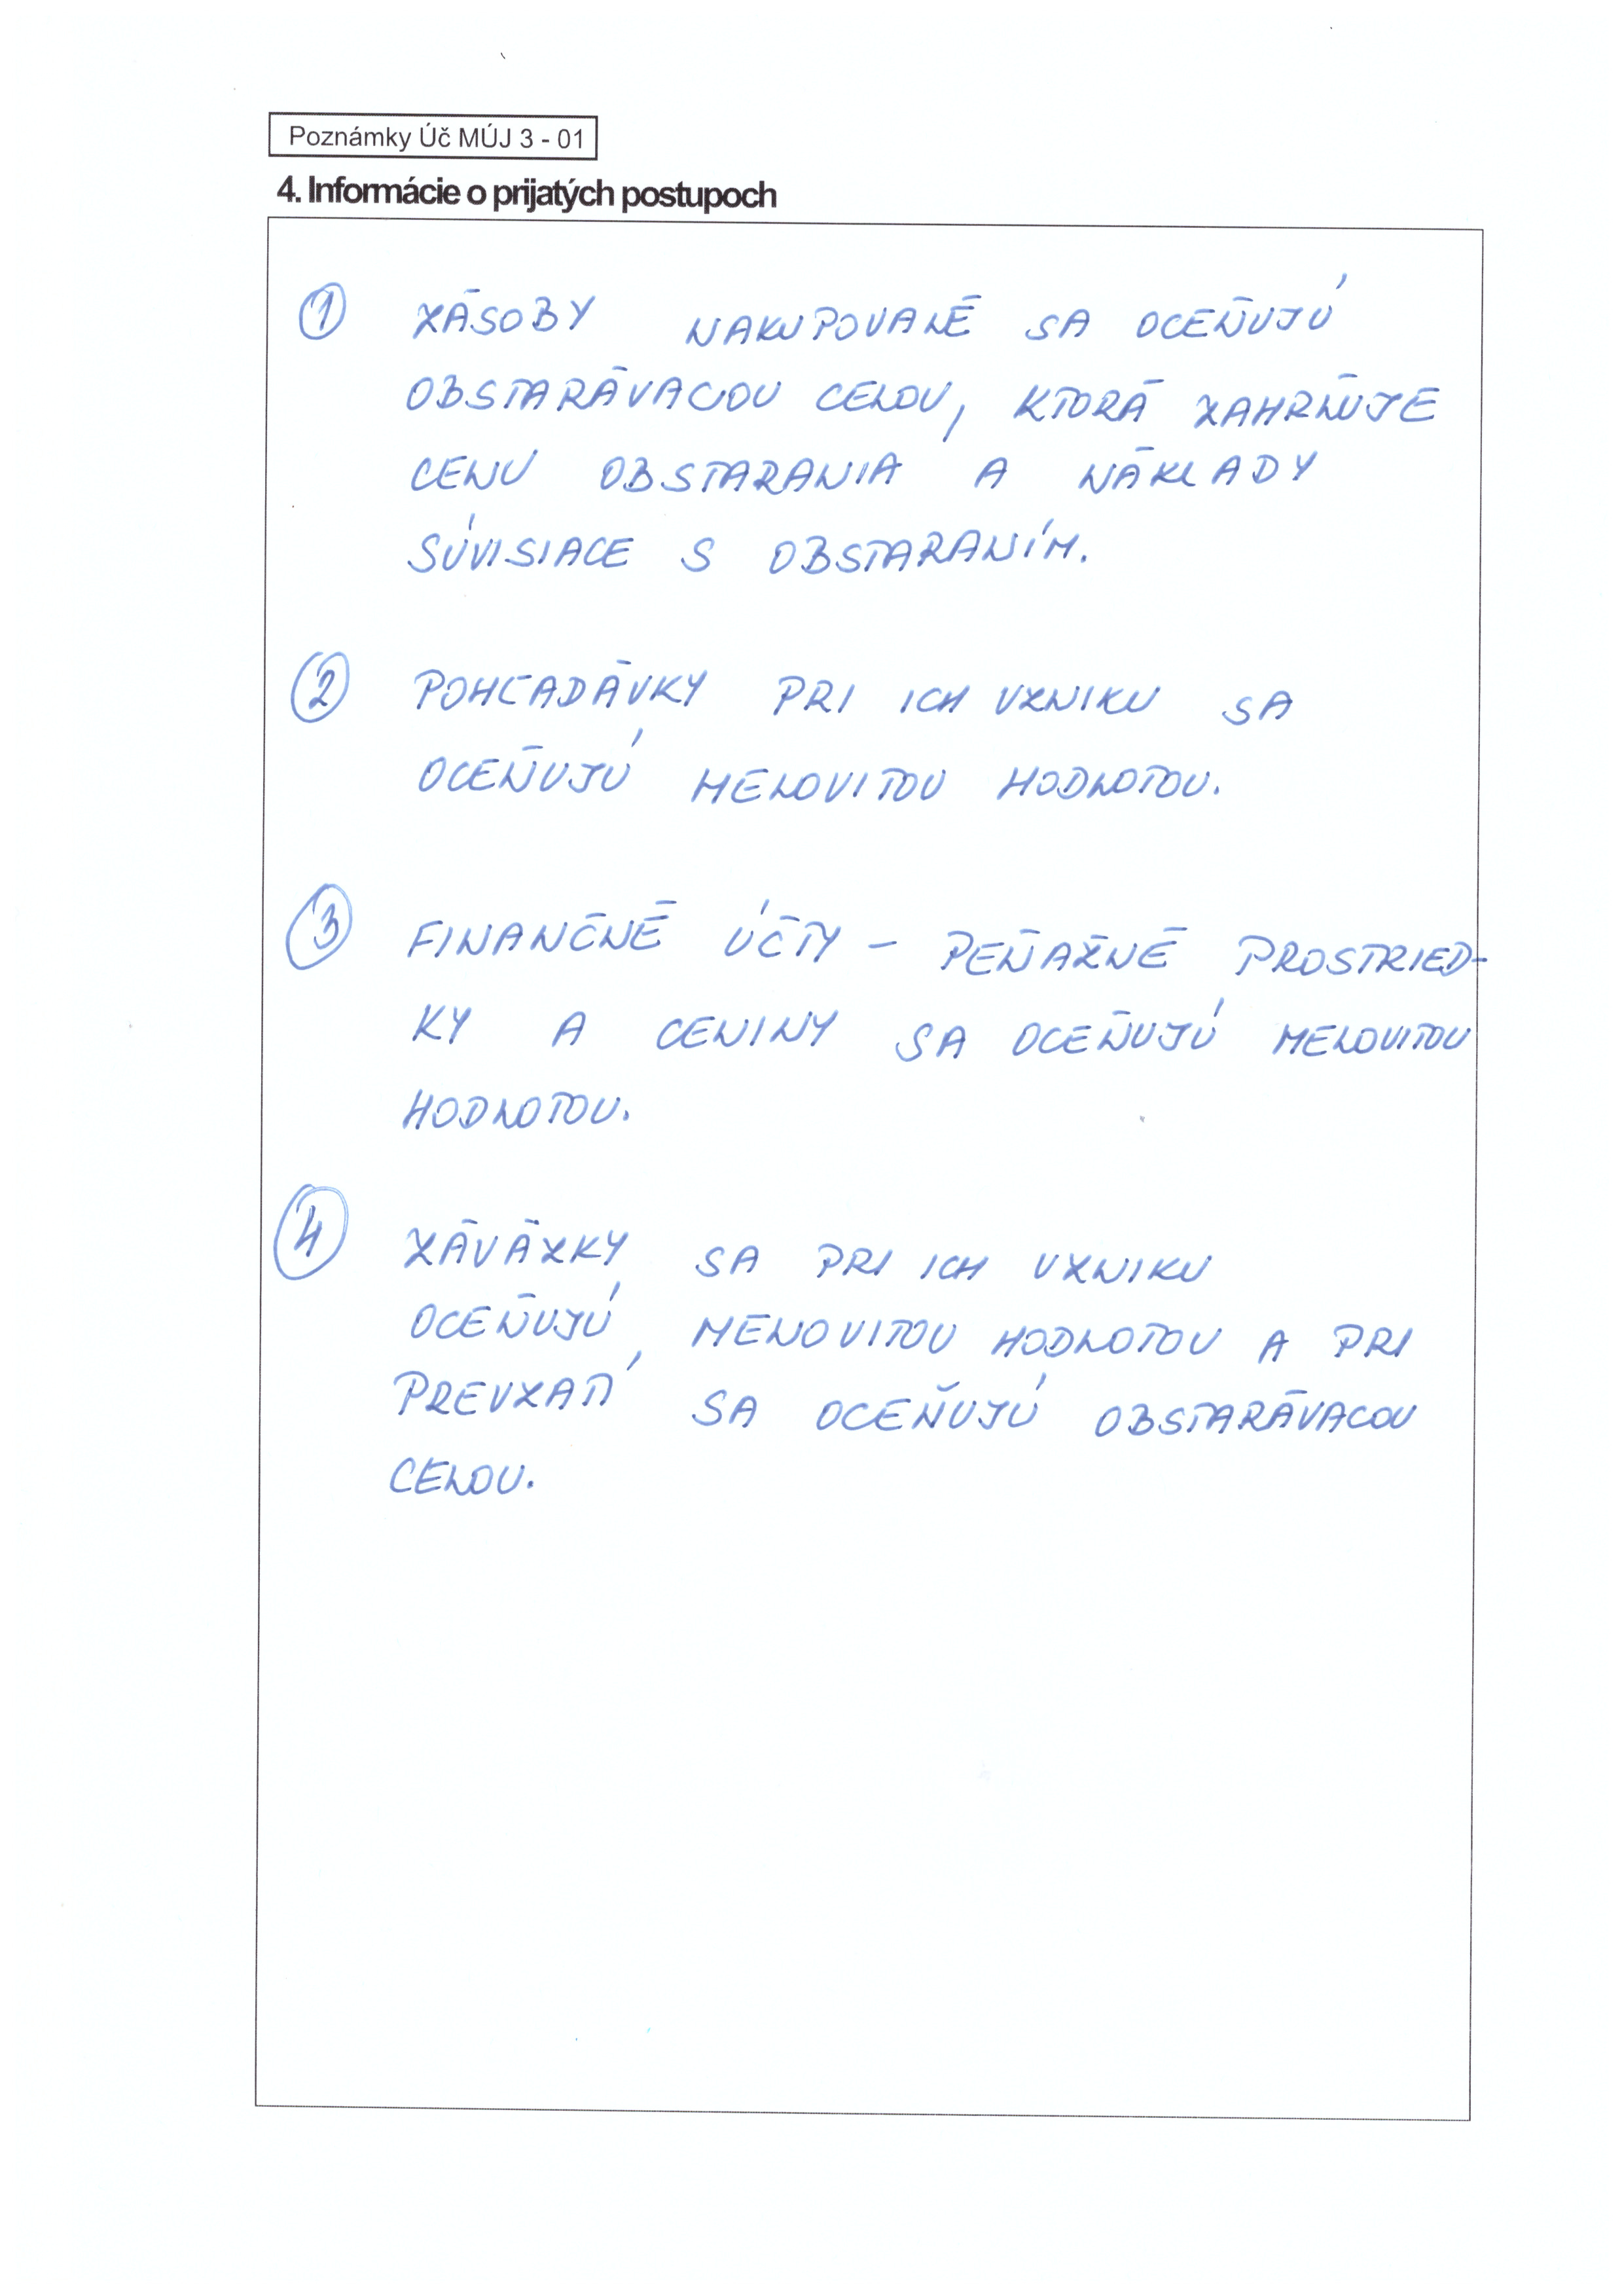 Poznámky Úč MÚJ 3 - 01
4. Informácie o prijatých postupoch
1 ZÁSOBY NAKUPOVANÉ SA OCEŇUJÚ
OBSTARÁVACOU CENOU, KTORÁ ZAHRŇUJE
CENU OBSTARANIA A NÁKLADY
SÚVISIACE S OBSTARANÍM.
2 POHĽADÁVKY PRI ICH VZNIKU SA
OCEŇUJÚ MENOVITOU HODNOTOU.
3 FINANČNÉ ÚČTY - PEŇAŽNÉ PROSTRIED-
KY A CENINY SA OCEŇUJÚ MENOVITOU
HODNOTOU.
4 ZÁVÄZKY SA PRI ICH VZNIKU
OCEŇUJÚ MENOVITOU HODNOTOU A PRI
PREVZATÍ SA OCEŇUJÚ OBSTARÁVACOU
CENOU.